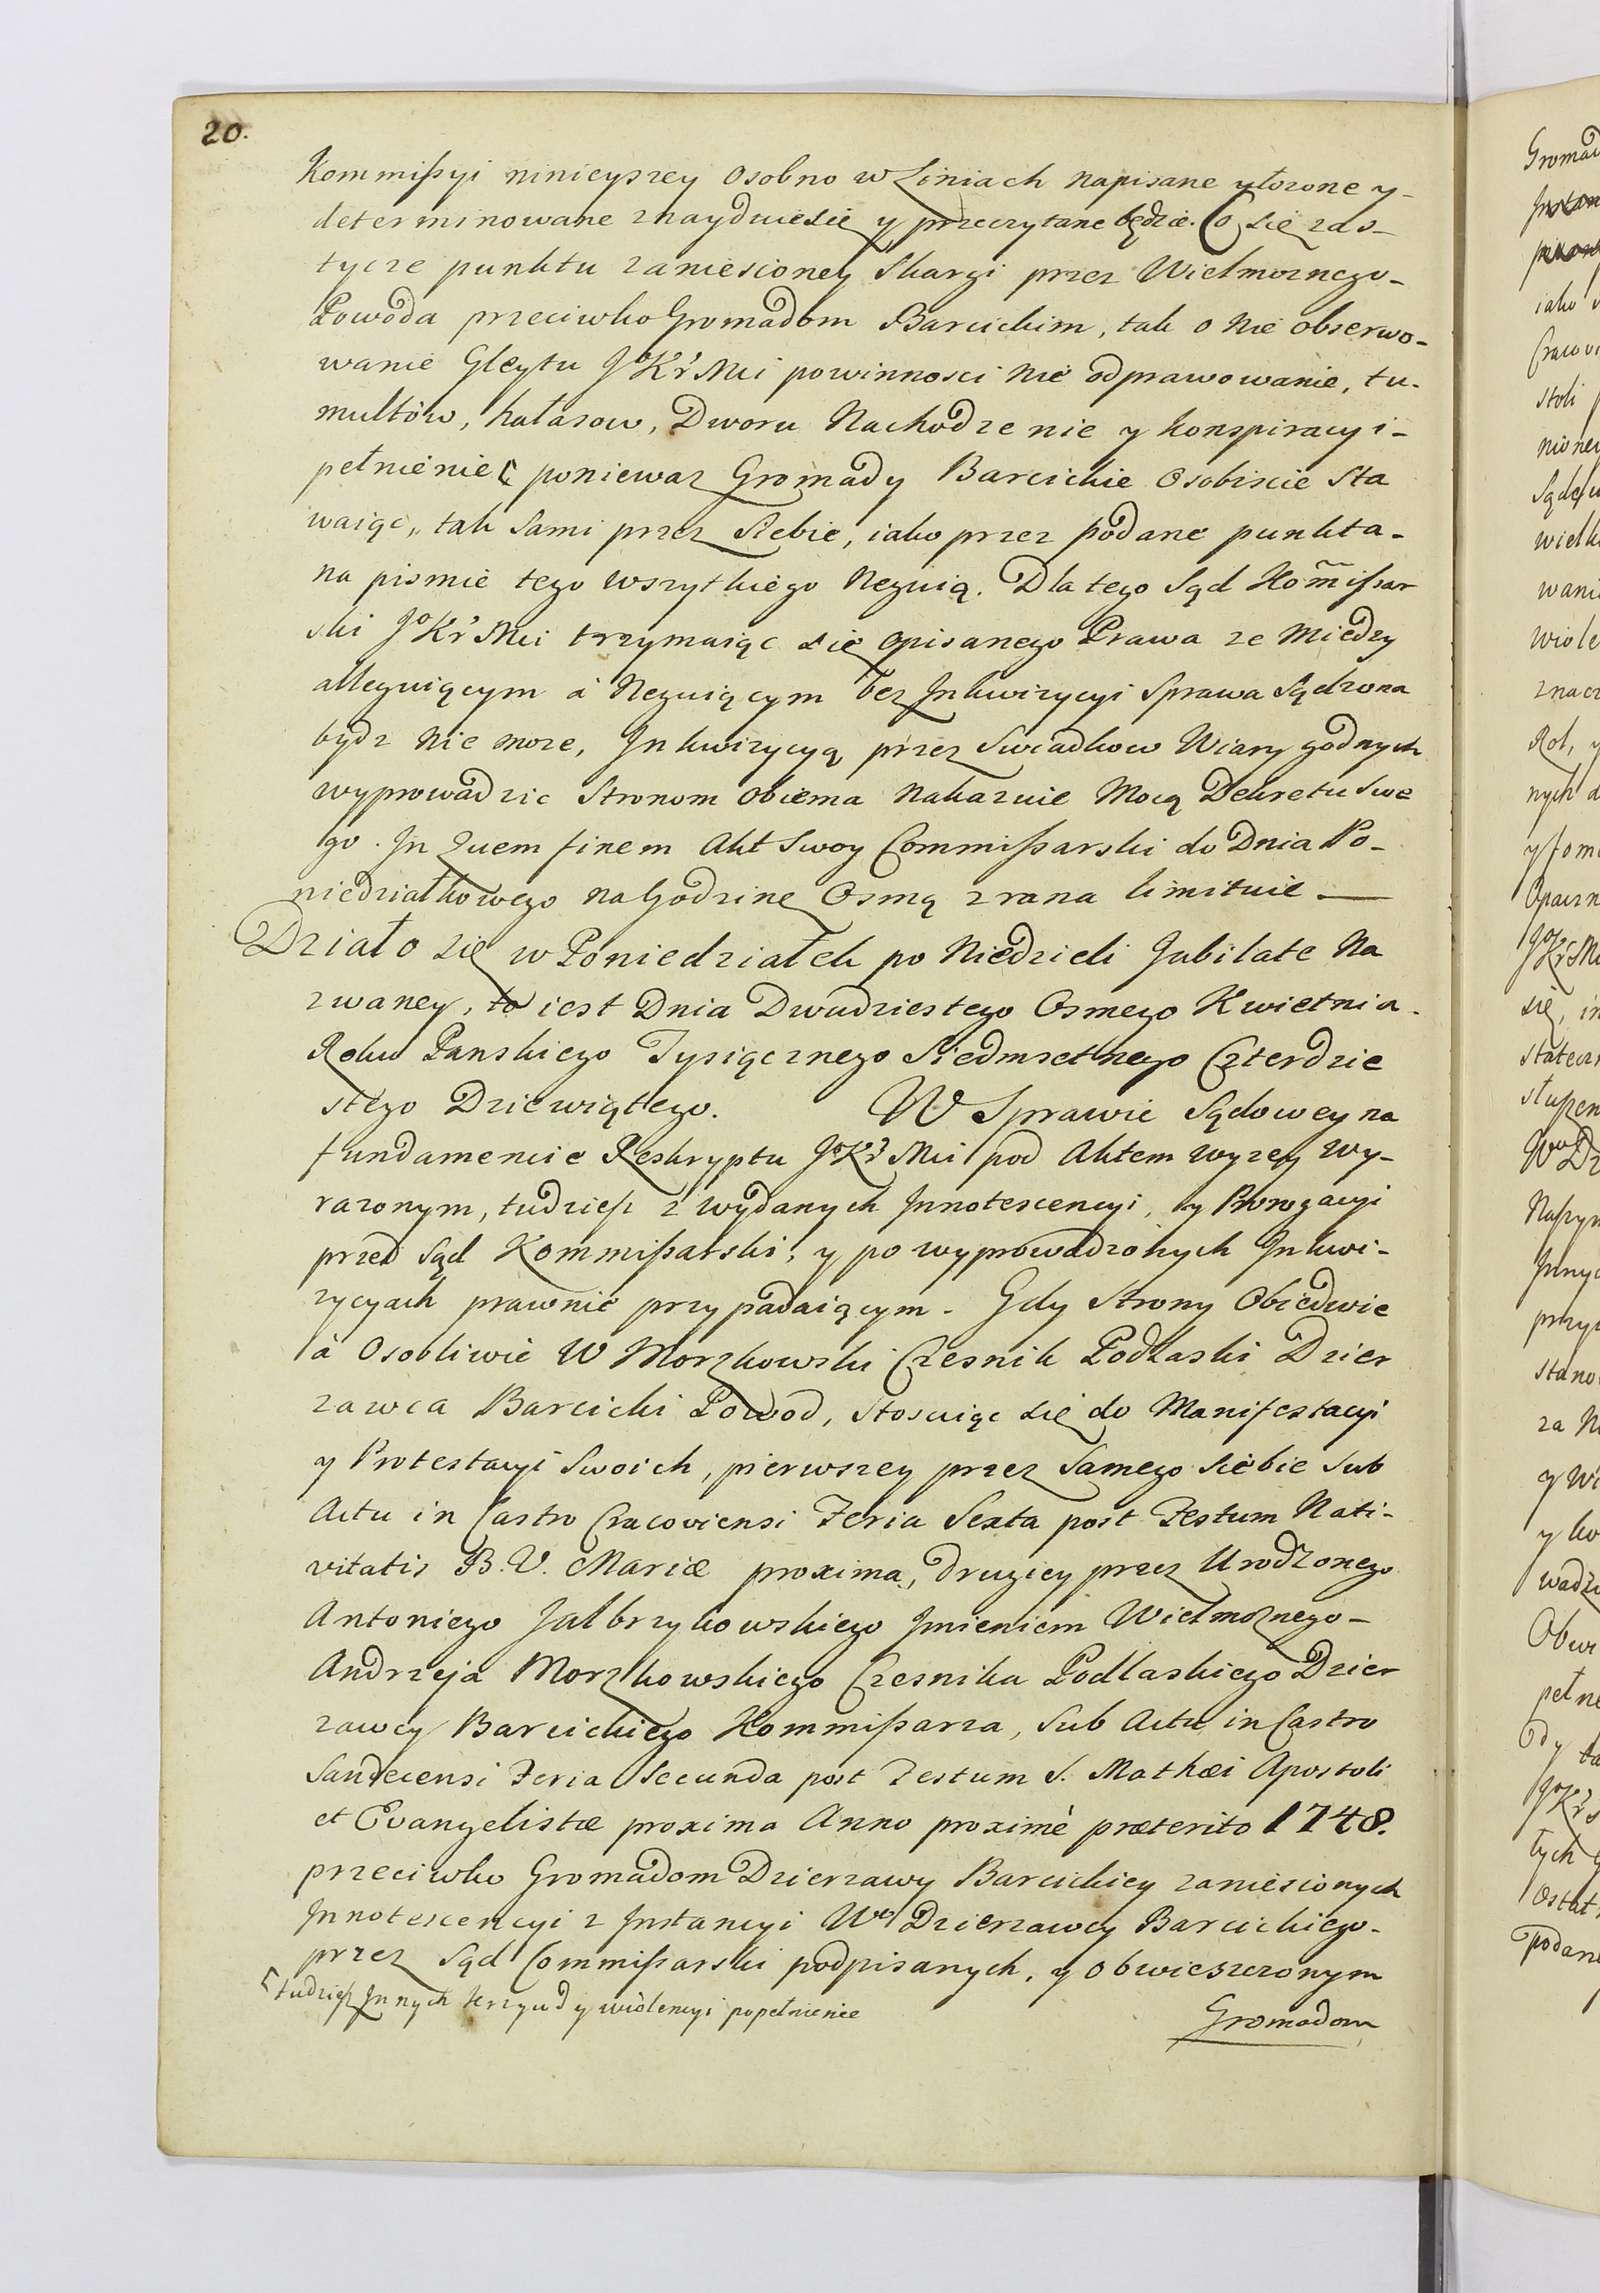 20.
Kommißyi ninieyszey osobno w Liniach napisane ułozone y
determinowane znayduie się y przeczytane będzie. Co się zas
tycze punktu zaniesioney Skargi przez Wielmoznego
Powoda przeciwko Gromadom Barcickim, tak o nie obserwo-
wanie Gleytu JoKr Mci powinnosci nie odprawowanie, tu-
multów, hałasow, Dworu Nachodzenie y konspiracyi
pełnienie [ poniewaz Gromady Barcickie Osobiscie sta
waiąc, tak sami przez siebie, iako przez podane punkta
na pismie tego wszytkiego Neguią. Dla tego Sąd Kom̃ißar
ski JoKr Mci trzymaiąc się opisanego Prawa ze miedzy
alleguiącym à Neguiącym bez Inkwizycyi Sprawa Sądzona
bydz nie moze, Inkwizycyą przez Swiadkow Wiary godnych
wyprowadzic Stronom obiema nakazuie Mocą Dekretu Swe
go. In quem finem Akt Swoy Commißarski do Dnia Po-
niedziałkowego na Godzinę Osmą z rana limituie —
Działo się w Poniedziałek po Niedzieli Jubilate Na
zwaney, to iest Dnia Dwudziestego Osmego Kwietnia
Roku Panskiego Tysiącznego Siedmsetnego Czterdzie
stego Dziewiątego. W Sprawie Sądowey na
fundamencie Reskryptu JoKr Mci pod Aktem wyzey wy-
razonym, tudzieß z wydanych Innotescencyi, y Prorogacyi
przed Sąd Kommißarski, y po wyprowadzonych Inkwi-
zycyach prawnie przypadaiącym. Gdy Strony Obiedwie
à Osobliwie W Morzkowski Czesnik Podlaski Dzier
zawca Barcicki Powod, stosuiąc się do Manifestacyi
y Protestacyi Swoich, pierwszey przez Samego siebie sub
Actu in Castro Cracoviensi Feria Sexta post Festum Nati-
vitatis B. V. Mariæ proxima, drugiey przez Urodzonego
Antoniego Jałbrzykowskiego Imieniem Wielmoznego
Andrzeja Morzkowskiego Czesnika Podlaskiego Dzier
zawcy Barcickiego Kommißarza, sub Actu in Castro
Sandecensi Feria Secunda post Festum S. Mathæi Apostoli
et Evangelistæ proxima Anno proximè præterito 1748.
przeciwko Gromadom Dzierzawy Barcickiey zaniesionych
Innotescencyi z Instancyi Wo Dzierzawcy Barcickiego
przez Sąd Commißarski podpisanych, y obwieszczonym
[ tudzieß Innych krzywd y wiolencyi popełnienie
Gromadom